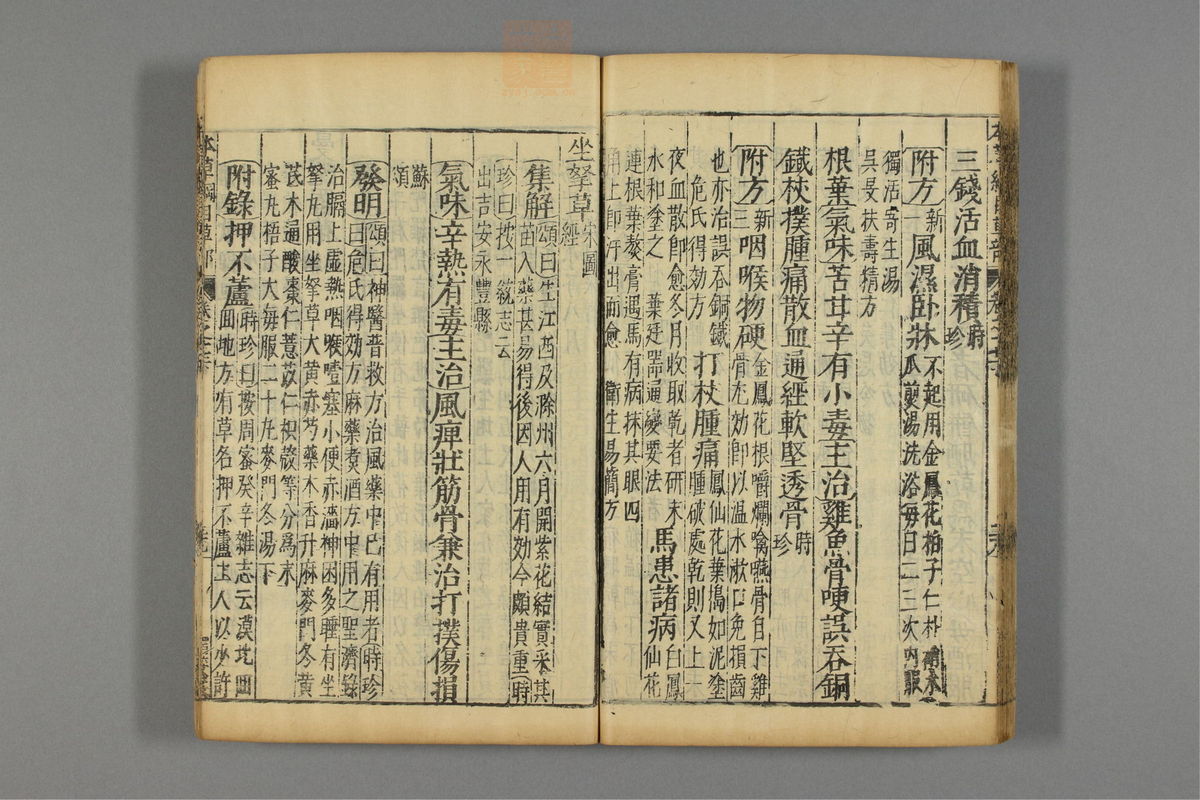 三錢活血消積時珍
附方新一風濕臥牀不起用金鳳花栢子仁朴硝木
瓜煎湯洗浴每日二三次內服
獨活寄生湯
吳旻扶壽精方
根葉氣味苦甘辛有小毒主治雞魚骨哽誤吞銅
鐵杖撲腫痛散血通經軟堅透骨時珍
附方新三咽喉物硬金鳳花根嚼爛噙嚥骨自下雞
骨尤効卽以温水漱口免損齒
也亦治誤吞銅鐵
危氏得効方打杖腫痛鳳仙花葉搗如泥塗
腫破處乾則又上一
夜血散卽愈冬月收取乾者研末
水和塗之
葉廷器通變要法馬患諸病白鳳
仙花
連根葉熬膏遇馬有病抹其眼四
角上卽汗出而愈衛生易簡方
坐拏草宋圖經
集解頌曰生江西及滁州六月開紫花結實采其
苗入藥甚易得後因人用有効今頗貴重時
珍曰按一統志云
出吉安永豐縣
氣味辛熱有毒主治風痺壯筋骨兼治打撲傷損
蘇頌
發明頌曰神醫普救方治風藥中已有用者時珍
曰危氏得効方麻藥煑酒方中用之聖濟錄
治膈上虛熱咽喉噎塞小便赤濇神困多睡有坐
拏丸用坐拏草大黄赤芍藥木香升麻麥門冬黄
芪木通酸棗仁薏苡仁枳殼等分爲末
蜜丸梧子大每服二十丸麥門冬湯下
附錄押不蘆時珍曰按周密癸辛雜志云漠北回
回地方有草名押不蘆土人以少許